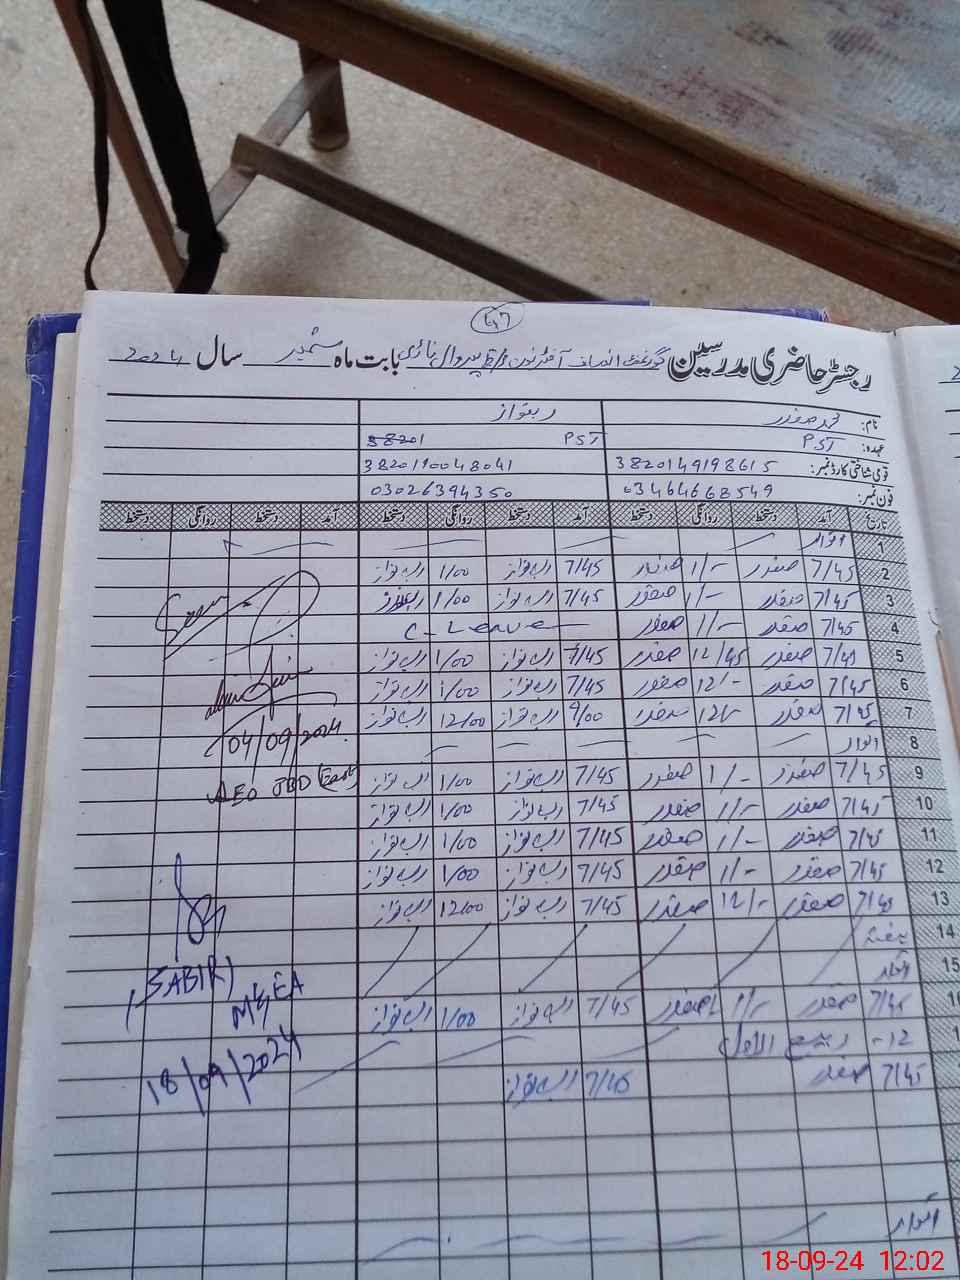 47
رجسٹر حاضری مدرسین گورنمنٹ انصاف آفٹرنون بابت ماہ ستمبر سال 2024
نام: محمد صفدر ربنواز
عہدہ: PST PST 38201
قومی شناختی کارڈ نمبر: 3820149198615 3820190048041
فون نمبر: 03464668549 03026394350
تاریخ آمد دستخط روانگی دستخط آمد دستخط روانگی دستخط آمد دستخط روانگی دستخط
1 اتوار
2 7/45 صفدر 1/- صفدر 7/45 رب نواز 1/00 رب نواز
3 7/45 صفدر 1/- صفدر 7/45 رب نواز 1/00 رب نواز
4 7/45 صفدر 1/- صفدر C-Leave
5 صفدر 12/45 صفدر 7/45 رب نواز 1/00 رب نواز
6 7/45 صفدر 12/- صفدر 7/45 رب نواز 1/00 رب نواز
7 7/45 صفدر 12/- صفدر 9/00 رب نواز 12/00 رب نواز
04/09/2024
8 اتوار
AEO JBD (East)
9 7/45 صفدر 1/- صفدر 7/45 رب نواز 1/00 رب نواز
10 7/45 صفدر 1/- صفدر 7/45 رب نواز 1/00 رب نواز
11 7/45 صفدر 1/- صفدر 7/45 رب نواز 1/00 رب نواز
12 7/45 صفدر 1/- صفدر 7/45 رب نواز 1/00 رب نواز
13 7/45 صفدر 12/- صفدر 7/45 رب نواز 12/00 رب نواز
14 ہفتہ
15 اتوار
(SABIR)
MEA
7/45 صفدر 1/- صفدر 7/45 رب نواز 1/00 رب نواز
12- ربیع الاول
18/09/2024
7/45 صفدر 7/45 رب نواز
اتوار
18-09-24 12:02